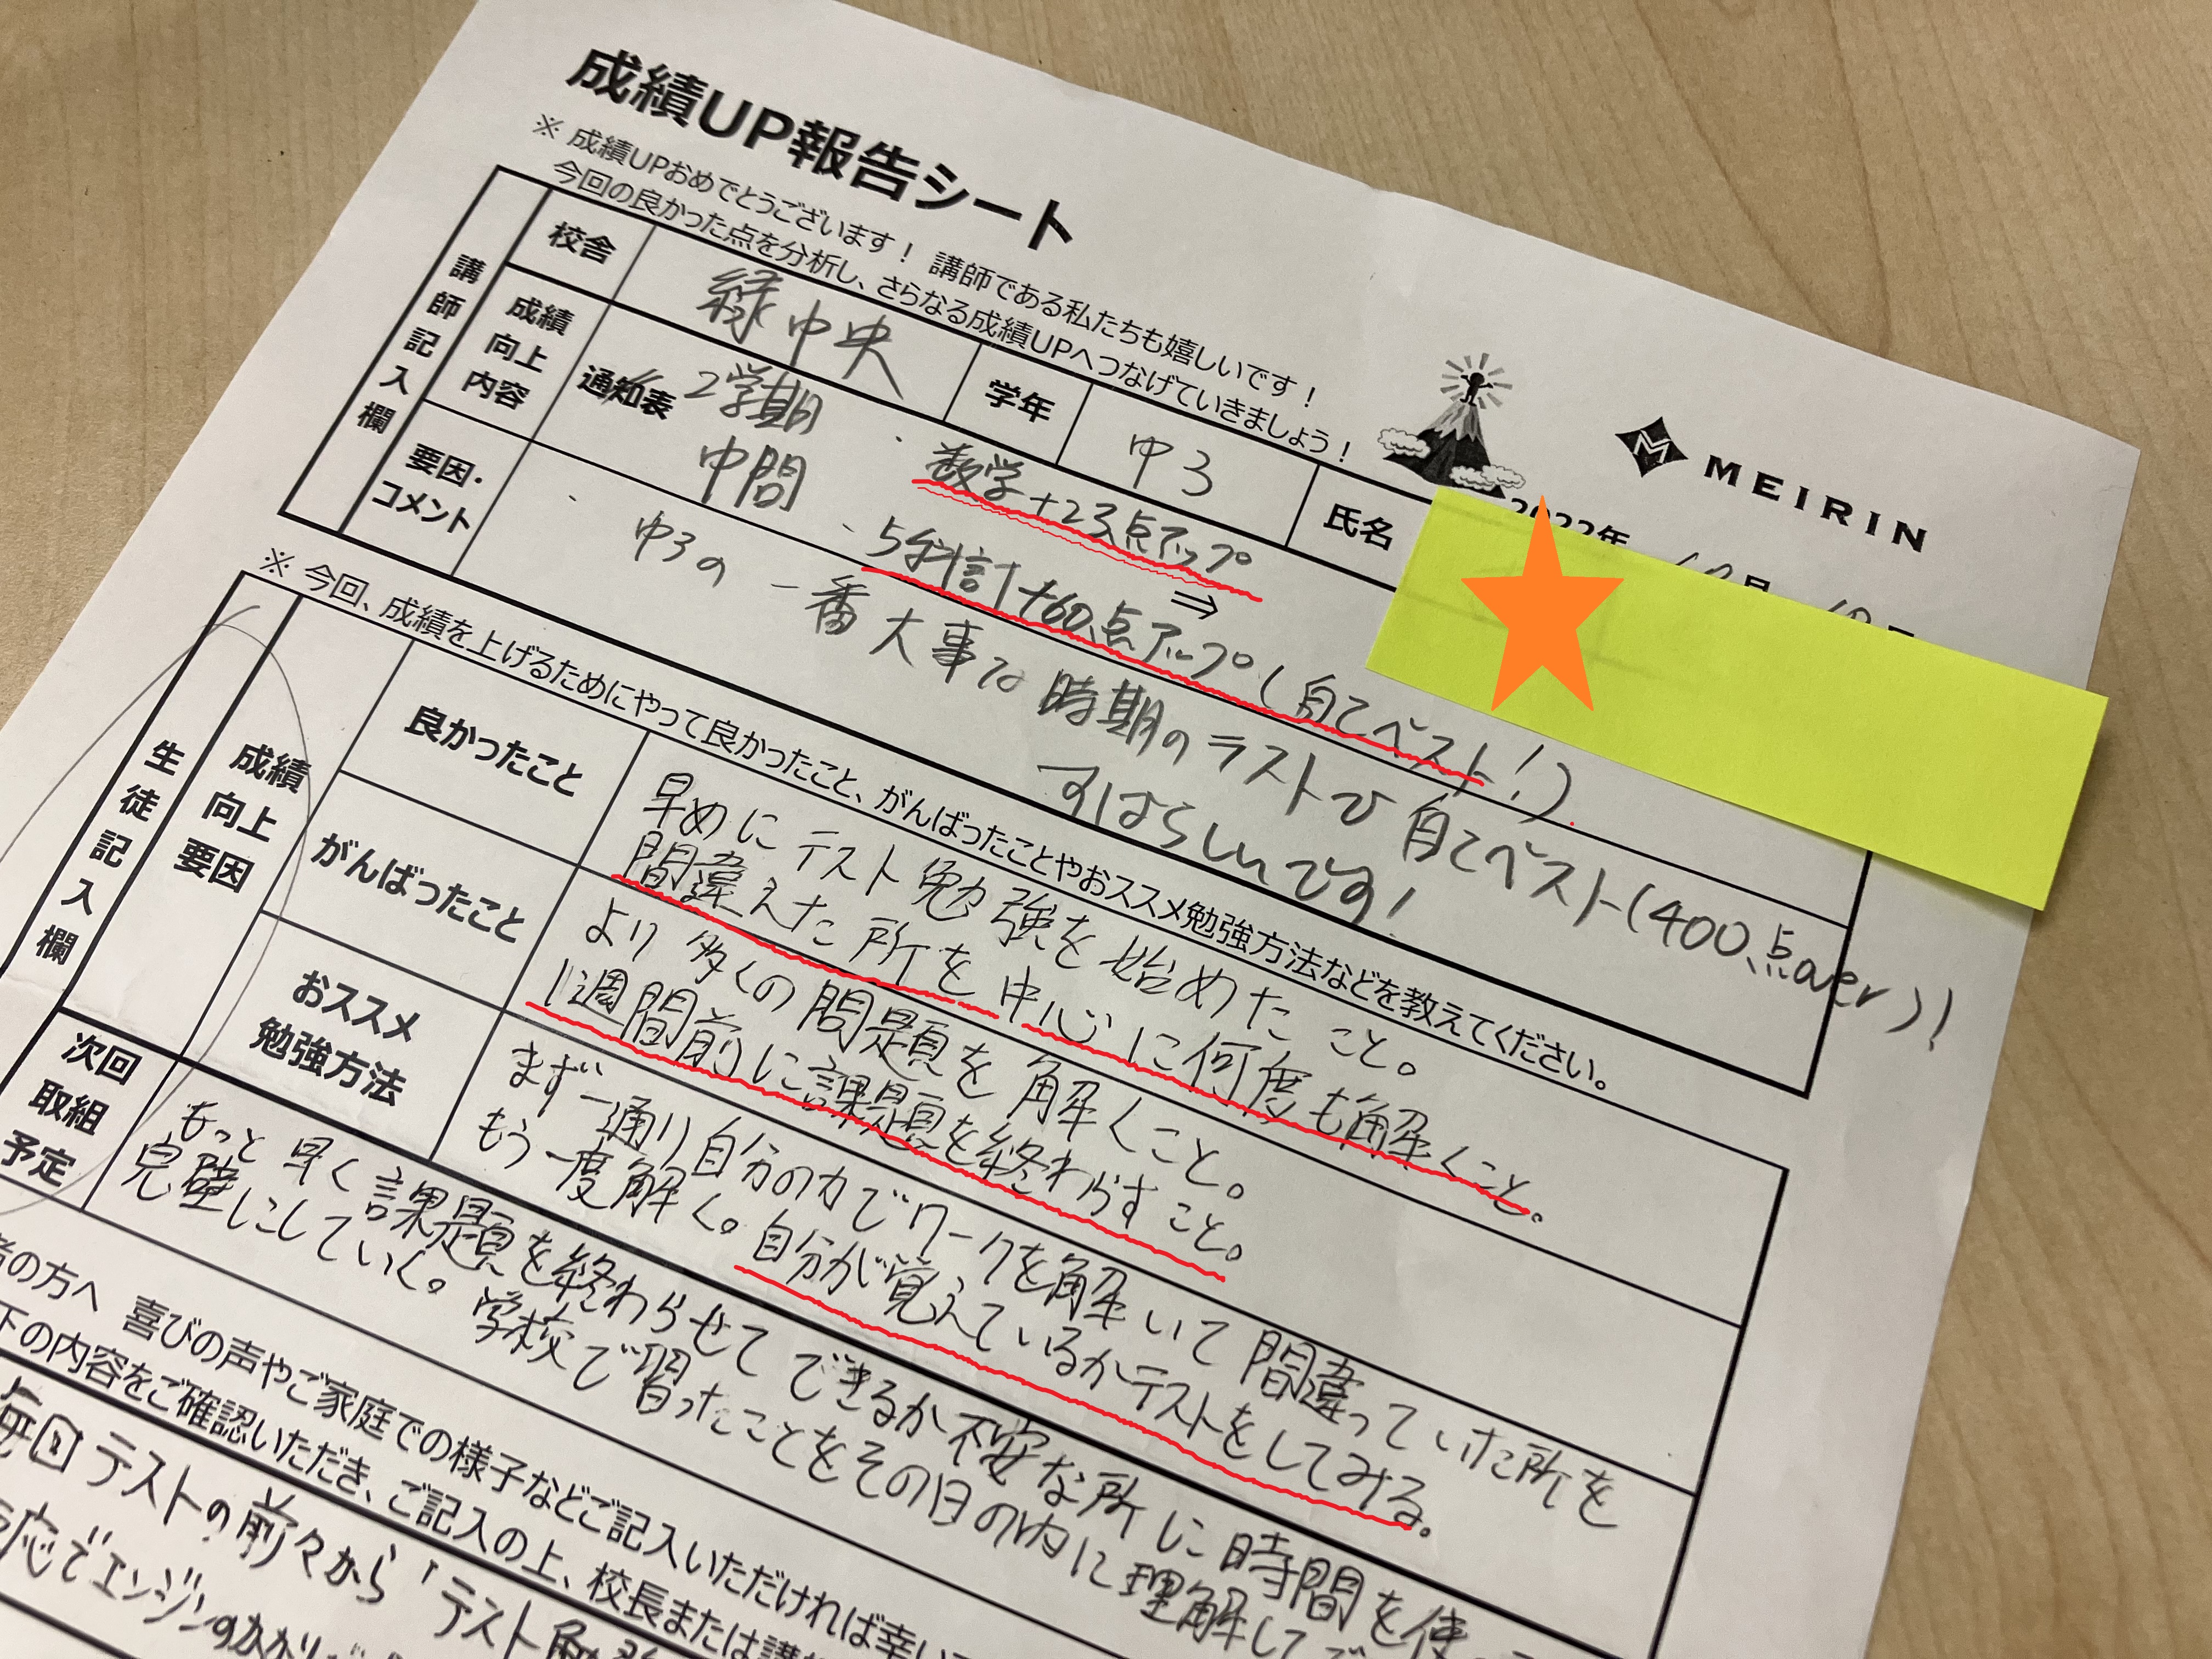 成績UP報告シート
※ 成績UPおめでとうございます！ 講師である私たちも嬉しいです！
今回の良かった点を分析し、さらなる成績UPへつなげていきましょう！
MEIRIN
2022年
講師記入欄
校舎
緑中央
学年
中3
氏名
成績向上内容
通知表
2学期
中間
・数学+23点アップ
・5科計+60点アップ(自己ベスト!)
⇒
要因・コメント
中3の一番大事な時期のテストで自己ベスト(400点over)!
すばらしいです!
※ 今回、成績を上げるためにやって良かったこと、がんばったことやおススメ勉強方法などを教えてください。
生徒記入欄
成績向上要因
良かったこと
早めにテスト勉強を始めたこと。
間違えた所を中心に何度も解くこと。
がんばったこと
より多くの問題を解くこと。
1週間前に課題を終わらすこと。
おススメ勉強方法
まず一通り自分の力でワークを解いて間違っていた所を
もう一度解く。自分が覚えているかテストをしてみる。
次回取組予定
もっと早く課題を終わらせてできるか不安な所に時間を使
完璧にしていく。学校で習ったことをその日の内に理解して
者の方へ 喜びの声やご家庭での様子などご記入いただければ幸い
下の内容をご確認いただき、ご記入の上、校長または講
毎回テストの前々から「テスト勉
応でエンジンのかかり